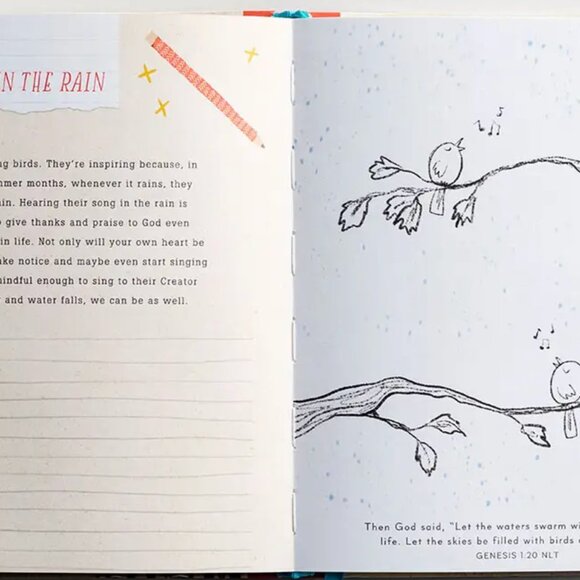 IN THE RAIN
ng birds. They're inspiring because, in
mmer months, whenever it rains, they
ain. Hearing their song in the rain is
o give thanks and praise to God even
in life. Not only will your own heart be
ake notice and maybe even start singing
mindful enough to sing to their Creator
and water falls, we can be as well.
Then God said, "Let the waters swarm wi
life. Let the skies be filled with birds
GENESIS 1:20 NLT